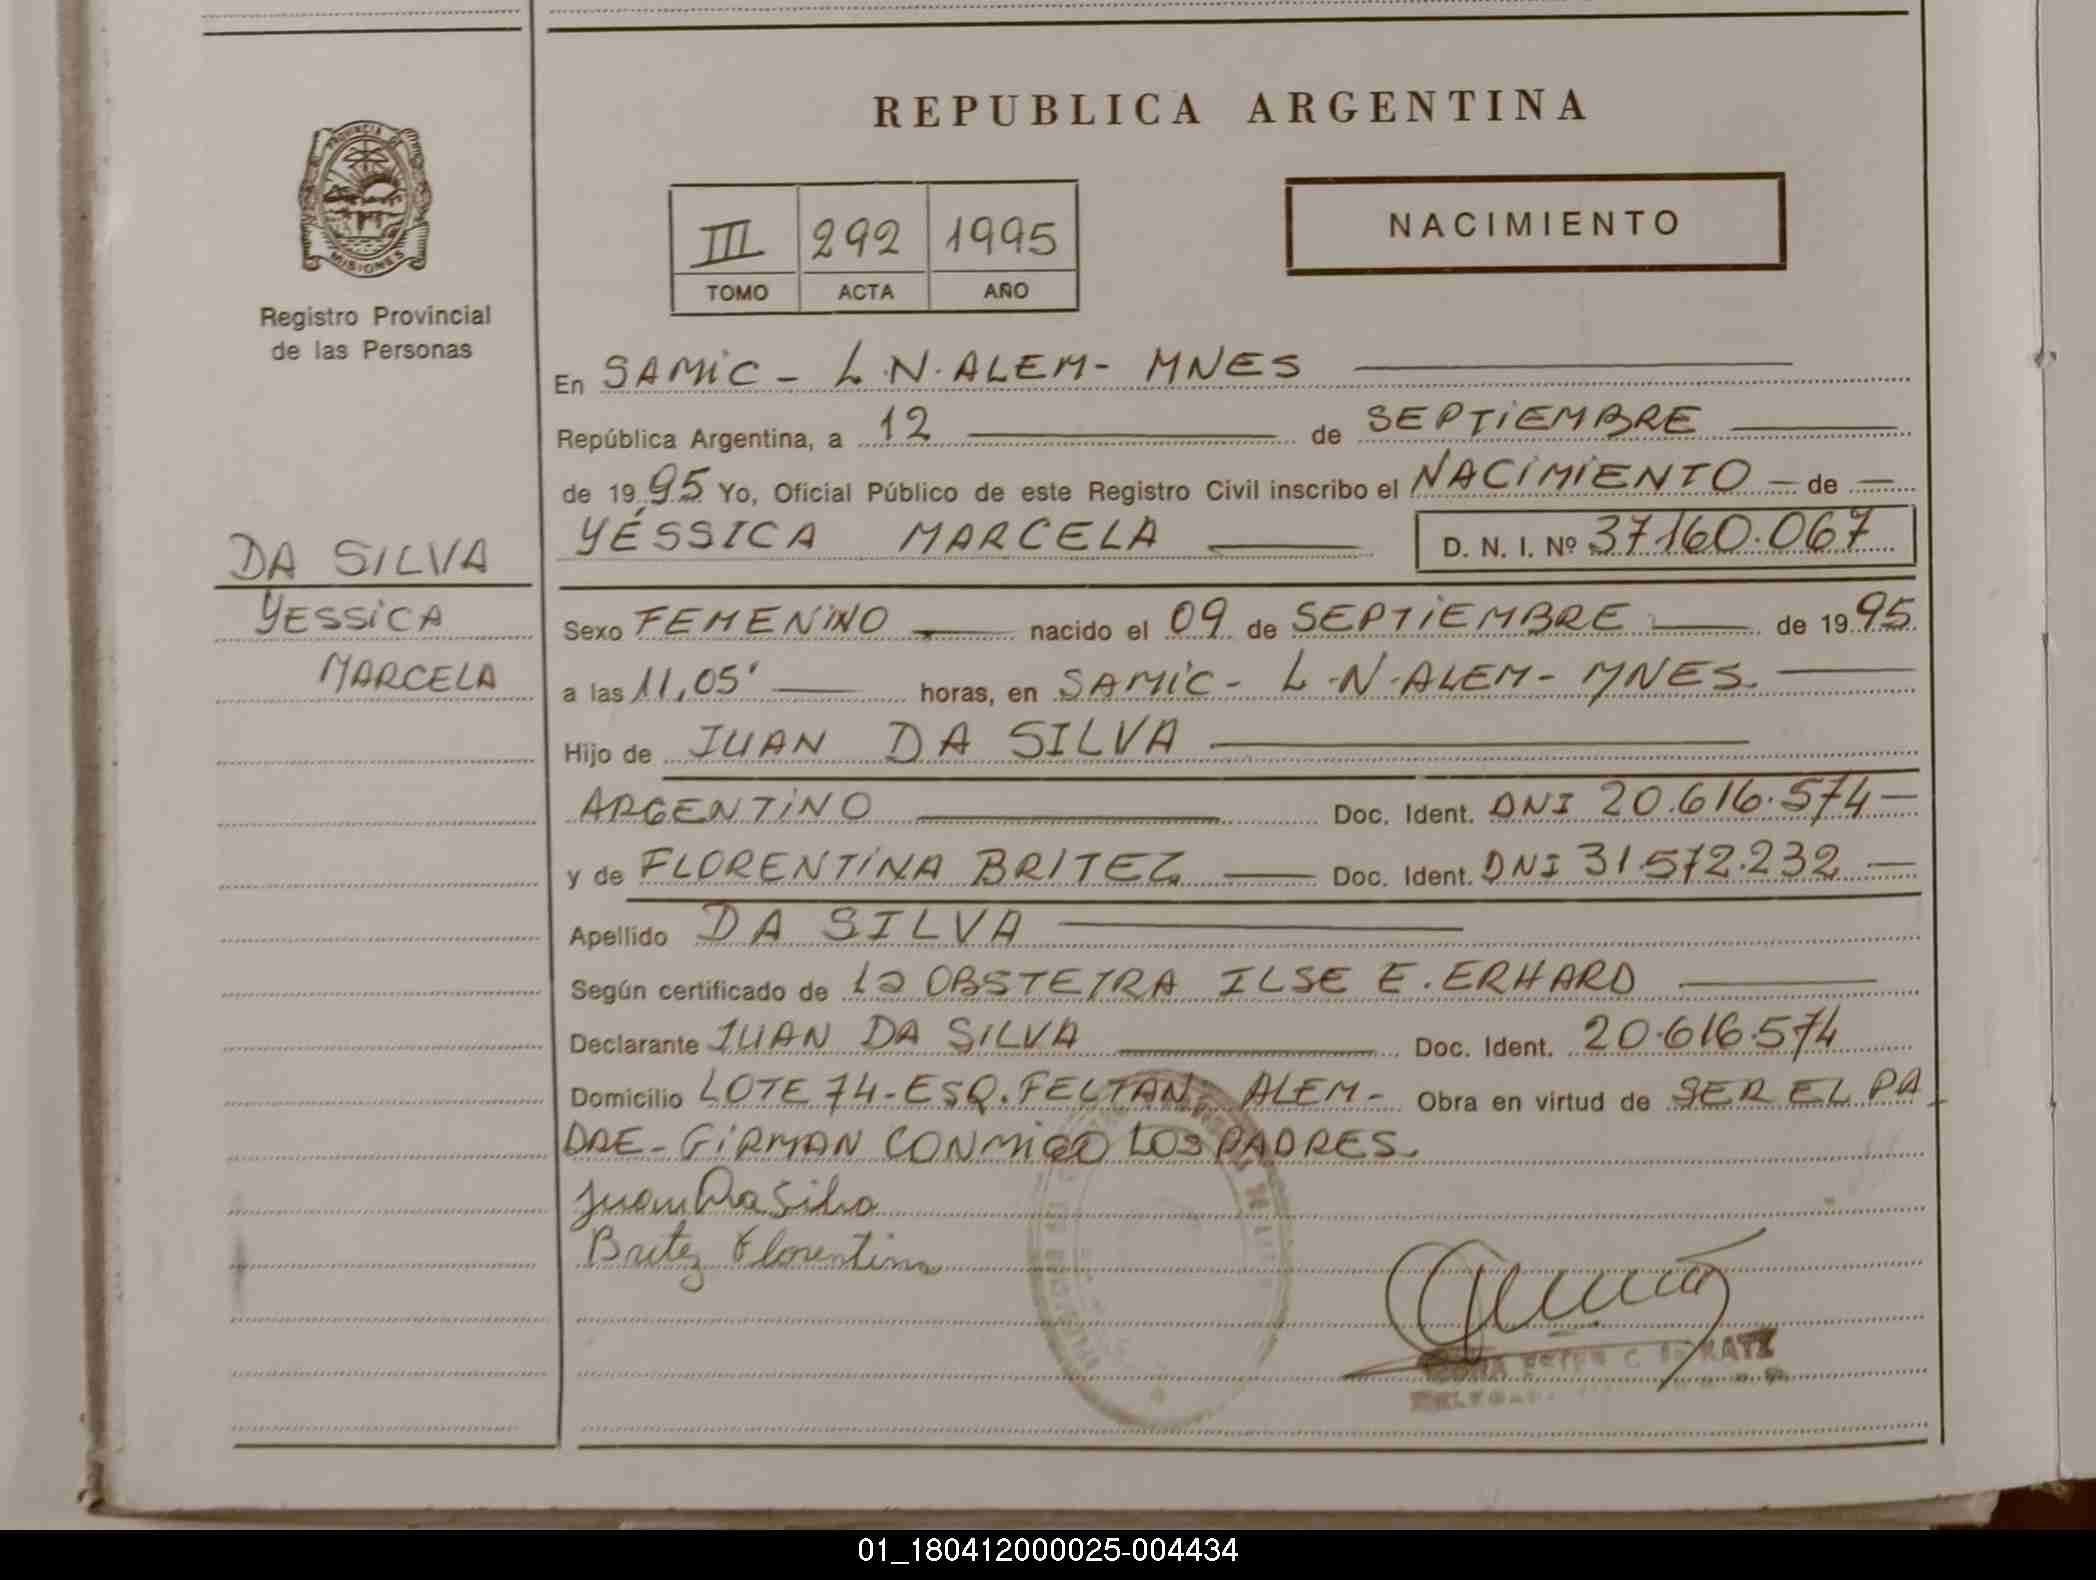 REPUBLICA ARGENTINA
PROVINCIA DE
MISIONES
Registro Provincial
de las Personas
III 292 1995
TOMO ACTA AÑO
NACIMIENTO
En SAMiC - L.N.ALEM - MNES
República Argentina, a 12 de SEPTiEMBRE
de 1995 Yo, Oficial Público de este Registro Civil inscribo el NACIMIENTO - de -
YÉSSICA MARCELA D. N. I. Nº 37160.067
DA SILVA
YESSiCA
MARCELA
Sexo FEMENiNO nacido el 09 de SEPTiEMBRE de 1995
a las 11,05' horas, en SAMiC - L.N.ALEM - MNES.
Hijo de JUAN DA SILVA
ARGENTiNO Doc. Ident. DNI 20.616.574 -
y de FLORENTiNA BRITEZ Doc. Ident. DNI 31.572.232 -
Apellido DA SILVA
Según certificado de la OBSTETRA ILSE E. ERHARD
Declarante JUAN DA SILVA Doc. Ident. 20.616.574
Domicilio LOTE 74 - ESQ. FELTAN, ALEM - Obra en virtud de SER EL PA
DRE - FiRMAN CONMiGO LOS PADRES.
Juan Da Silva
Britez Florentina
01_180412000025-004434